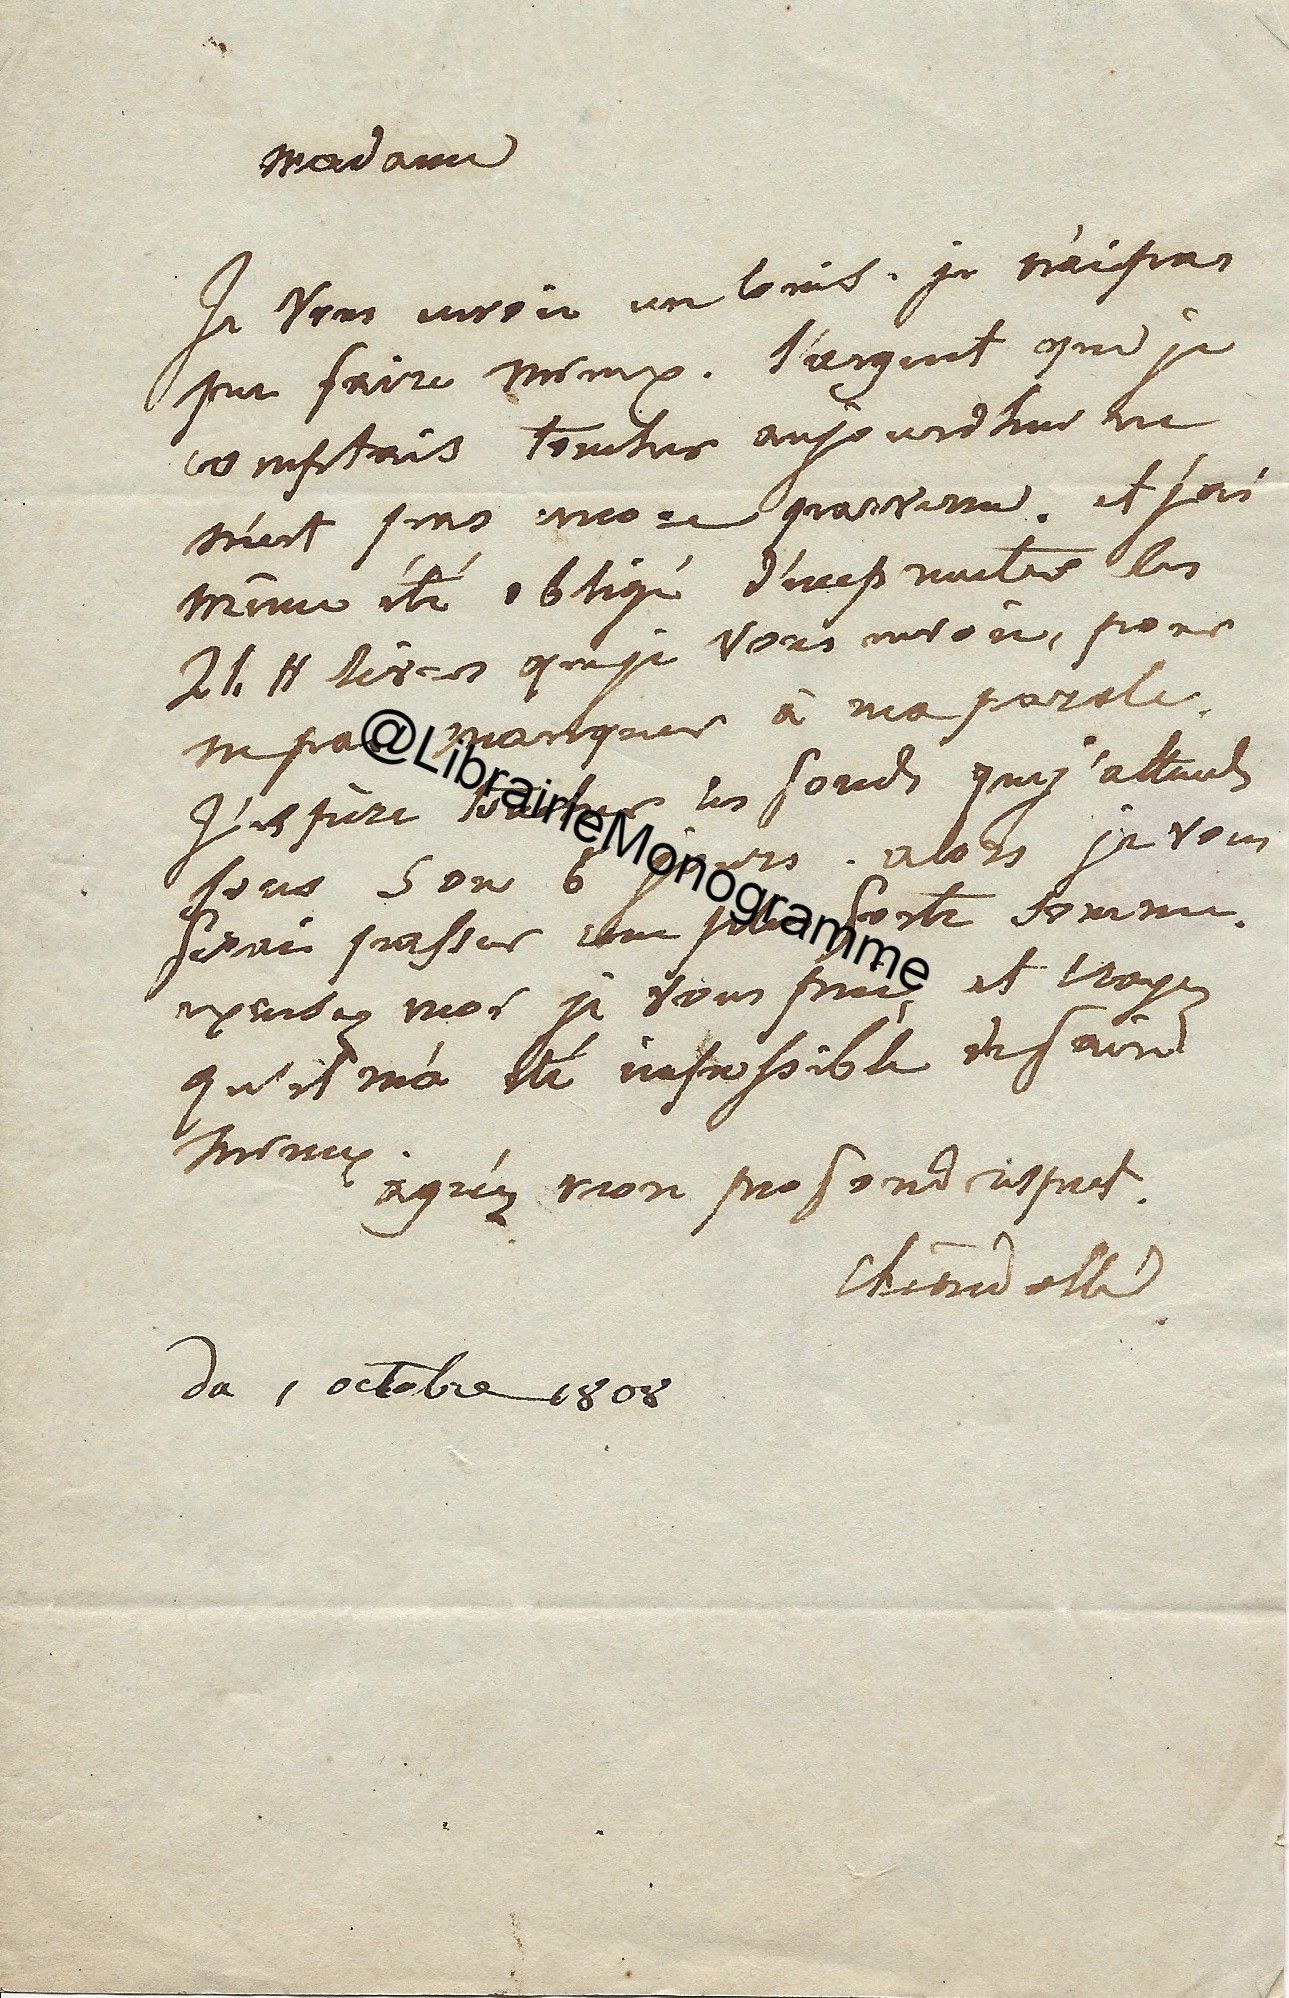 Madame
Je vous envoie un louis. je n'ai pas
pu faire mieux. l'argent que je
comptais toucher aujourdhui ne
m'est pas encore parvenu. et j'ai
même été obligé d'emprunter les
livres que je vous envoie, pour
ne pas manquer à ma parole.
J'espère toucher les fonds que j'attends
sous 5 ou 6 jours. alors je vous
ferai passer une plus forte somme.
excusez moi je vous prie, et croyez
qu'il m'a été impossible de faire
mieux.
agréez mon profond respect.
da 1 octobre 1808
@LibrairieMonogramme